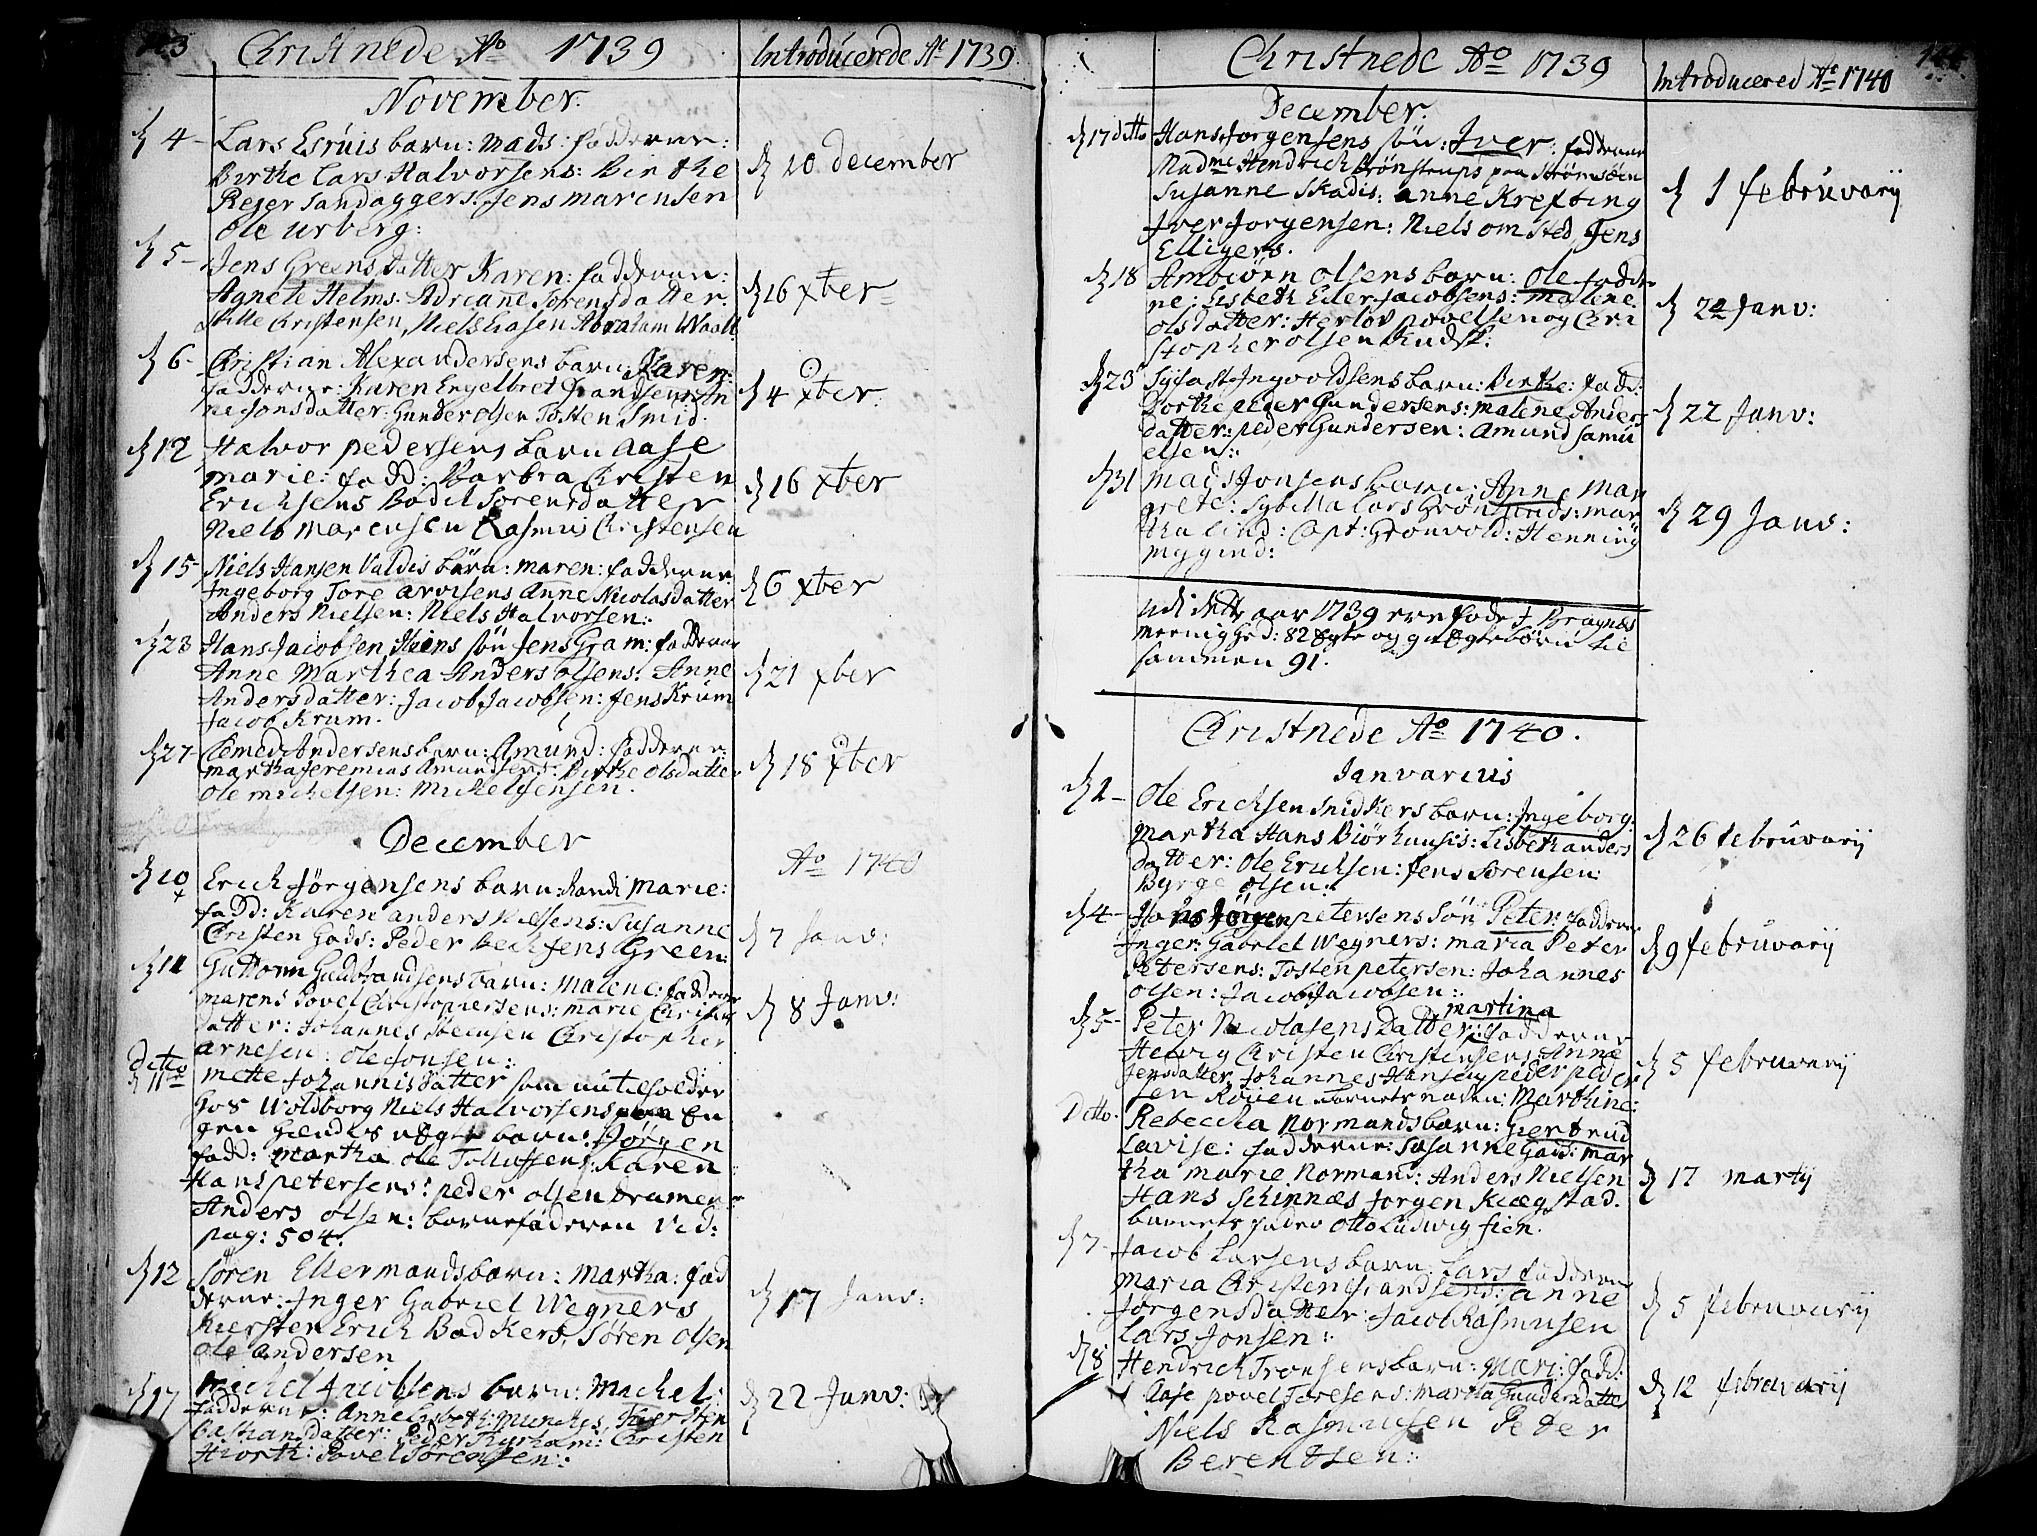 Christnede Ao 1739
Introducerede Ao 1739
November:
4 Lars Esruis barn: Mads: fadderne:
Birthe Lars Halvorsens: Birthe
Rejer Sandaggers: Jens Marensen
Ole Urberg:
10 december
5 Jens Greens datter Karen: fadderne:
Agnete Helms. Adriane Sorensdatter.
Christensen, Niels Abraham Waall
16 xber
6 Christian Alexandersens barn: Karen:
fadderne: Karen Engelbret
nejonsdatter: Gunder olsen Tosten Smid.
4 xber:
12 Halvor pedersens barn Aase
marie: fadd: Barbra Christen
Ericksens Bodil Sorensdatter
Niels Marensen Rasmus Christensen
16 xber
15 Niels Hansen Valdis børn: maren: fadderne
Ingeborg Tore arvesens Anne Nicolasdatter
Anders Nielsen: Niels Halvorsen:
6 xber
23 Hans Jacobsen Hiens søn Jens Gram: fadderne
Anne Marthea Anders olsens: Anne
Andersdatter: Jacob Jacobsen: Jens Krum
Jacob Krum.
21 xber
27 Clemed Andersens barn: Amund: fadderne:
martha Jeremias Amundsens: Birthe olsdatter
ole mickelsen: Mickel Jensen.
18 xber
December
Ao 1740
10 Erich Jørgensens barn: Randi Marie:
fadd: Karen anders Nielsens: Susanne
Christen Gads: Peder Green:
7 Janv:
11 Guttorm Guldbrandsens barn: Malene: fadderne
marens Povel Christophersens: marie Christens
datter: Johannes Steensen Christopher
arnesen: ole Jonsen:
8 Janv:
Ditto
11te mette Johannisdatter som
hos Woldborg Niels Halvorsens
gen hendes uægte barn: Jørgen
fadd: Martha ole Karen
Hans petersens: peder olsen
Anders olsen: barnefaderen Vid:
pag: 504.
12 Søren Ellermands barn: Martha: fad
derne: Inger Gabriel Wegners
Kiersten Erick Badkers, Søren olsen
ole andersen
17 Janv:
17 Michel Jacobsens barn: Michel:
fadderne: Anne Lisbeth Munches, Kiersten
datter: Peder Christen
Hiorth: Povel Sorensen:
22 Janv:
Christnede Ao 1739
Introducered Ao 1740
December.
17 ditto Hans Jorgensens søn: Iver: fadderne
Madme Hendrich Brønstrups paa Strømsøen
Susanne Skadis: anne Krefting
Iver Jorgensen: Niels omsted Jens
Elligers.
1 februvarij
18 Ambiørn olsens barn: Ole fadder
ne: Lisbeth Eller Jacobsens: Malene
olsdatter: Herlov povelsen og Chri
stopher olsen
24 Janv:
23 Ingvoldsens barn: Birthe: fadd:
Dorthe peder Gundersens: Malene Anders
datter: peder Gundersen: Amund Samu
elsen:
22 Janv:
31 Mads Jonsens barn: Anne Mar
grete: Sybilla Lars Grøn mar
tha lind: Capt: Gronvold: Henning
Myggind:
29 Janv:
udi dette aar 1739 ere fødde i Bragnæs
meenighed: 82 ægte og 9 uægte børn til
sammen 91.
Christnede Ao 1740.
Janvarius
1 Ole Ericksen Snidkers barn: Ingeborg:
Martha Hans Lisbeth anders
datter: Ole Ericksen: Jens Sorensen:
Byrge olsen:
26 februvarij
4 Hans Jørgen petersens Søn Peter: fadderne
Inger Gabriel Wegners: maria Peter
Petersens: Tosten petersen: Johannes
olsen: Jacob Jacobsen:
9 februvarij
martina
5 Peter Nicolasens Datter: fadderne
Hedvig Christen Christensens: Anne
Jensdatter Johannes Hansen peder peder
sen Barnets navn: Marthine:
5 februvarij
Ditto. Rebeccha Normands barn: Giertrud
Lavise: fadderne: Susanne Gads: mar
tha marie Normand: Anders Nielsen
Hans Schinnæs Jorgen Kiægstad.
barnets fader Otto Ludwig fien.
17 martij
7 Jacob Larsens barn: Lars fadderne
maria Christen anne
Jørgensdatter: Jacob Rasmusen
Lars Jonsen:
5 februvarij
8 Hendrick Tronsens barn: Mari: fadd:
Aase povel Toresens: Martha Gundersdatter
Niels Rasmusen Peder
Berentsen:
12 februvarij